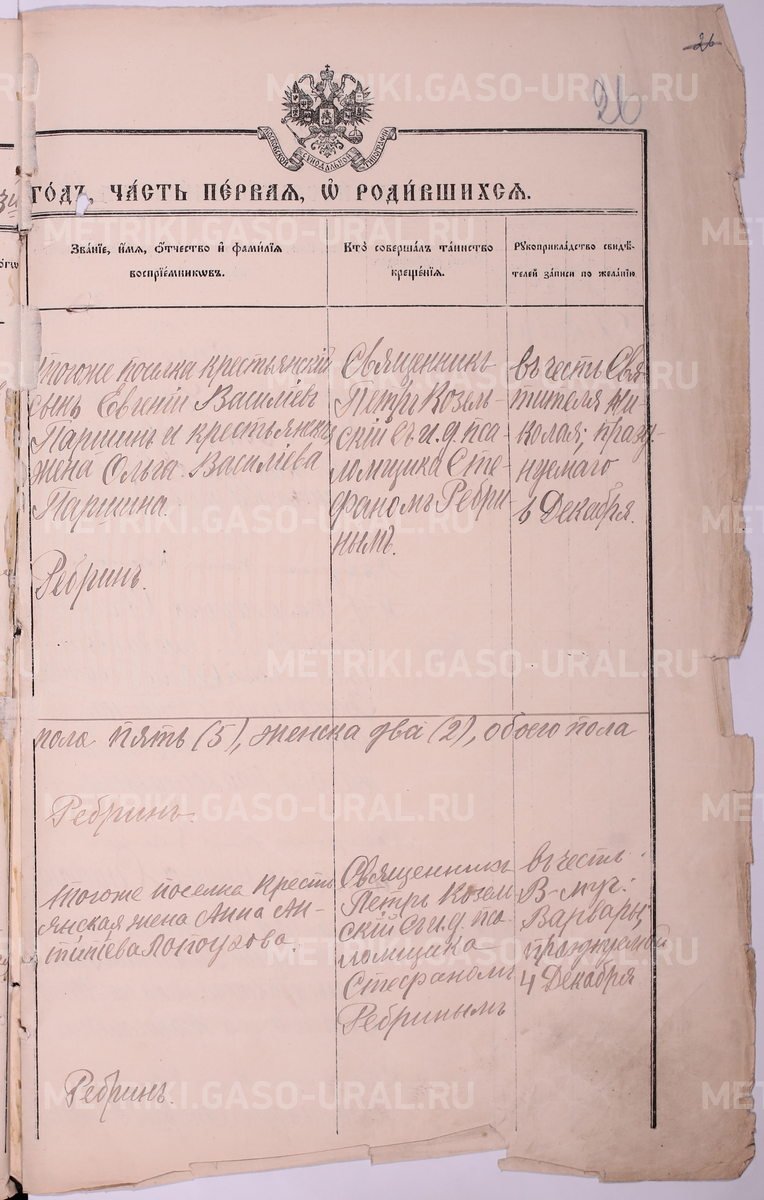 26
26
МОСКОВСКОЙ СѴНОДАЛЬНОЙ ТИПОГРАФІИ
го́дъ, ча́сть пе́рваѧ, ѽ роди́вшихсѧ.
Зва́нїе, и́мѧ, о́тчество и҆ фами́лїѧ
воспрїе́мникѡвъ.
Кто̀ соверша́лъ та́инство
креще́нїѧ.
Рꙋкоприкла́дство свидѣ́-
телей за́писи по жела́нїю
тогоже поселка крестьянскій
сынъ Евгеній Василіевъ
Паршинъ и крестьянская
жена Ольга Василіева
Паршина.
Ребринъ.
Священникъ
Петръ Козель-
скій съ и. д. пса-
ломщика Сте-
фаномъ Ребри-
нымъ.
въ честь Свя-
тителя Ни-
колая, празд-
нуемаго
6 Декабря.
пола пять (5), женска два (2), обоего пола
Ребринъ.
тогоже поселка кресть-
янская жена Анна Ан-
типіева Лопоухова.
Ребринъ.
Священникъ
Петръ Козель-
скій съ и. д. пса-
ломщика
Стефаномъ
Ребринымъ
въ честь
В-муч:
Варвары,
празднуемой
4 Декабря
METRIKI.GASO-URAL.RU